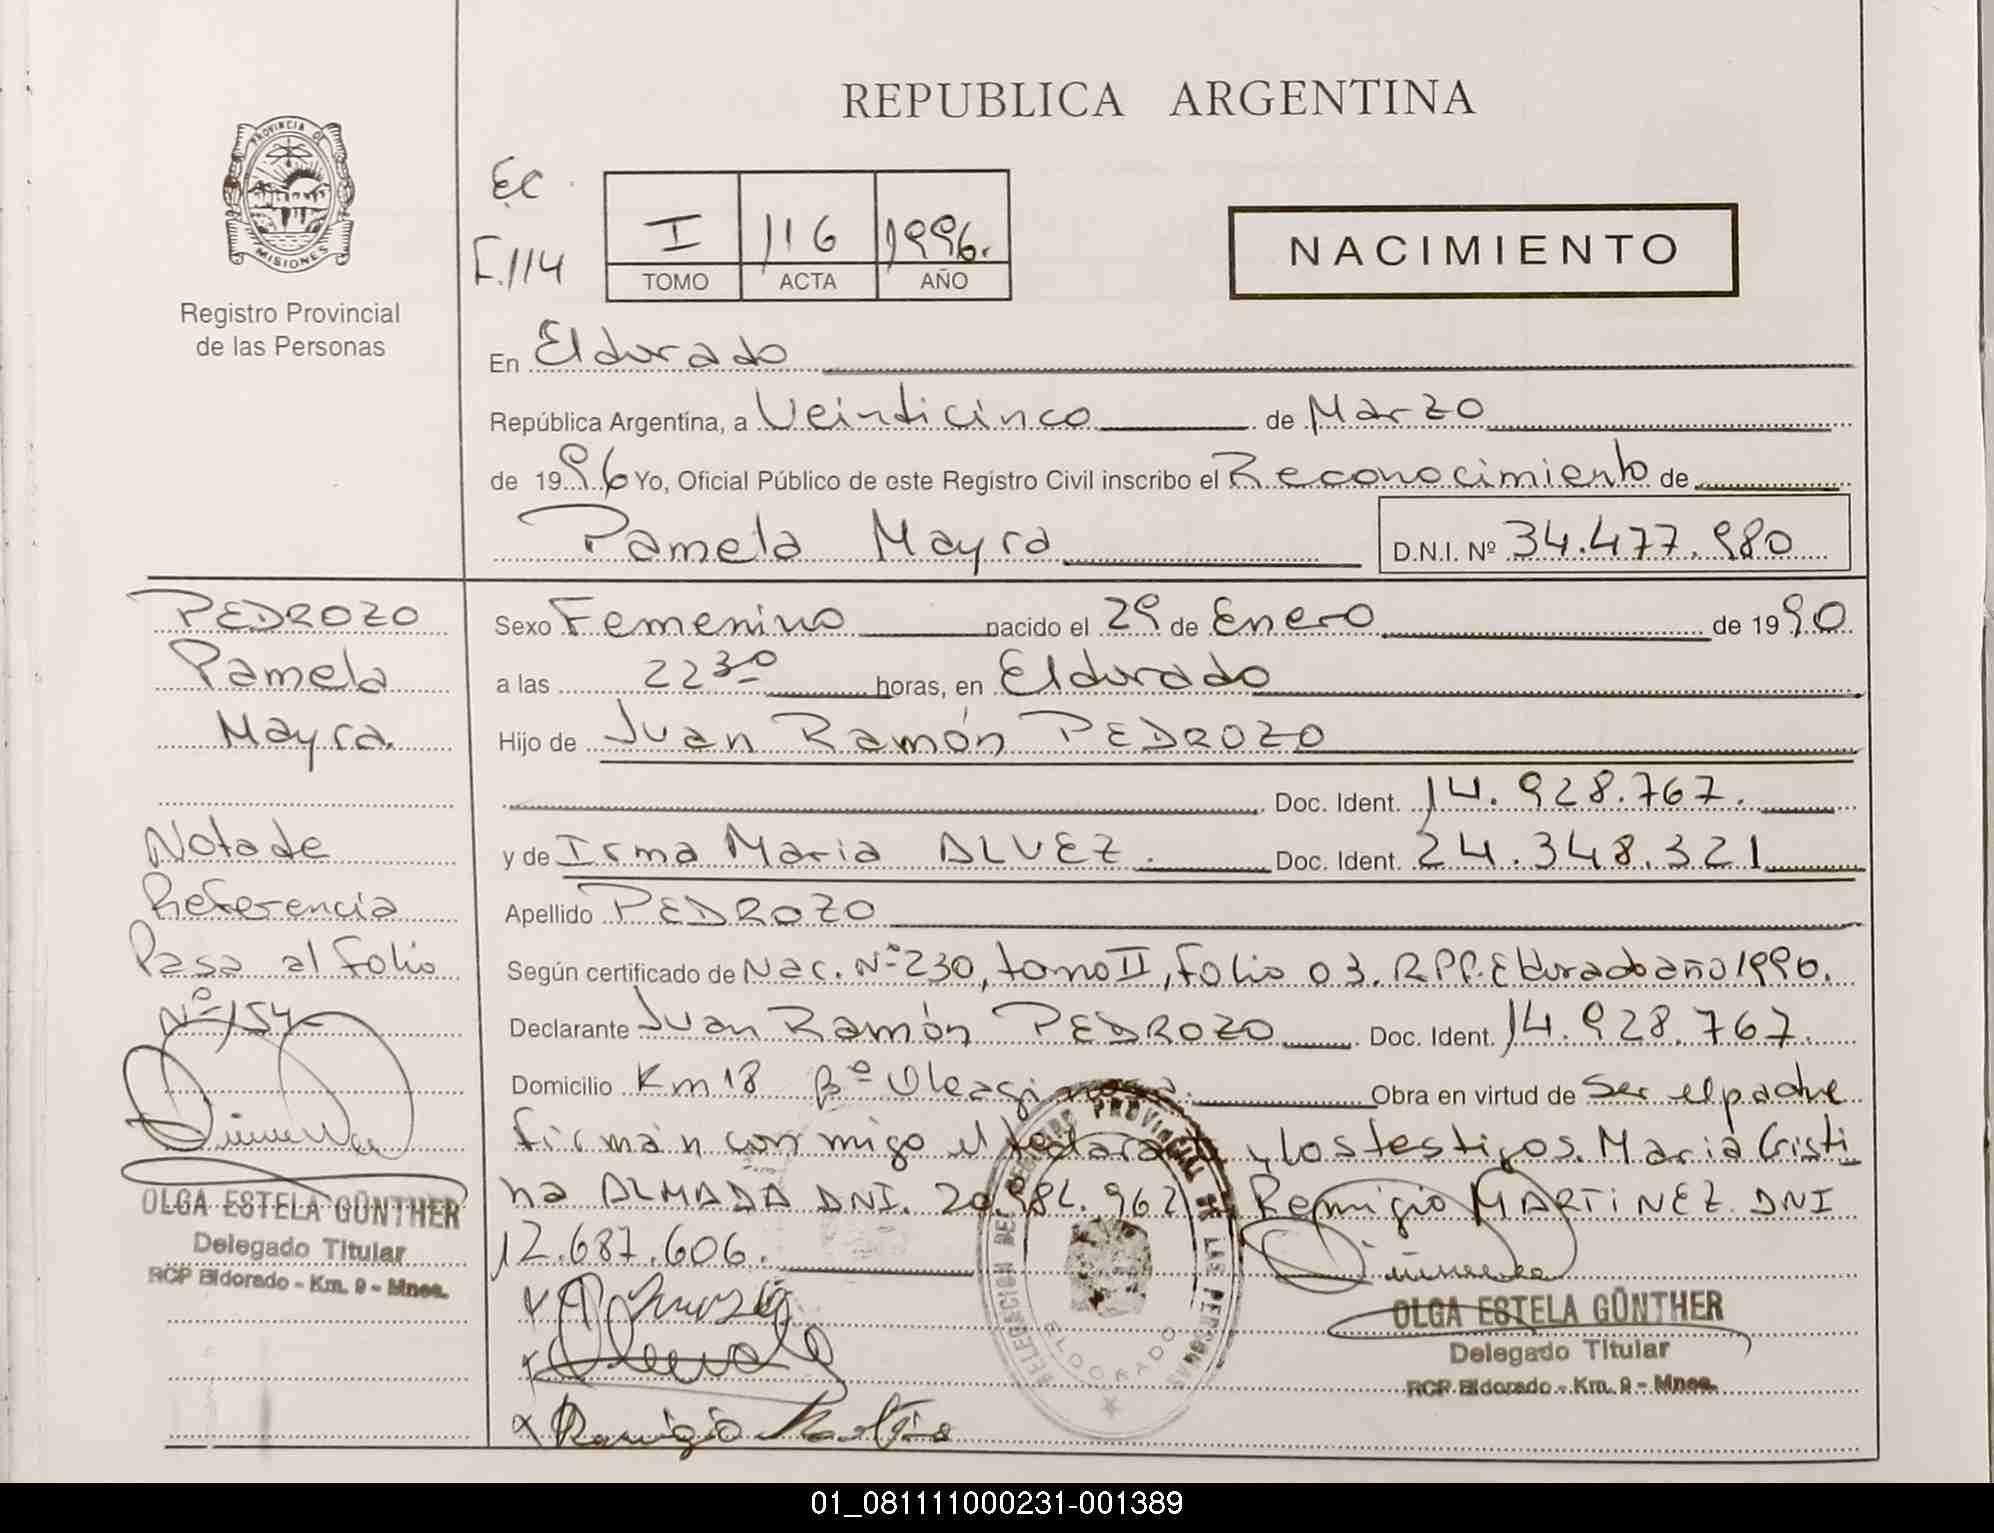 REPUBLICA ARGENTINA
PROVINCIA DE MISIONES
Registro Provincial
de las Personas
EC
F.114
I 116 1996.
TOMO ACTA AÑO
NACIMIENTO
En Eldorado
República Argentina, a Veinticinco de Marzo
de 1996 Yo, Oficial Público de este Registro Civil inscribo el Reconocimiento de
Pamela Mayra D.N.I. Nº 34.477.980
PEDROZO
Pamela
Mayra.
Nota de
Referencia
Pasa al folio
Nº 154
OLGA ESTELA GÜNTHER
Delegado Titular
RCP Eldorado - Km. 9 - Mnes.
Sexo Femenino nacido el 29 de Enero de 1990
a las 22 30 horas, en Eldorado
Hijo de Juan Ramón PEDROZO
Doc. Ident. 14.928.767.
y de Irma Maria ALVEZ. Doc. Ident. 24.348.321
Apellido PEDROZO
Según certificado de Nac. Nº 230, tomo II, folio 03. RPP. Eldorado año 1990.
Declarante Juan Ramón PEDROZO Doc. Ident. 14.928.767.
Domicilio Km 18 Bº Oleaginosa. Obra en virtud de Ser el padre
firmán con migo el declarante y los testigos. Maria Cristi
na ALMADA DNI. 20.982.962 Remigio MARTINEZ DNI
12.687.606.
DELEGACION DEL REGISTRO PROVINCIAL DE LAS PERSONAS
ELDORADO
x
x
x Remigio Martinez
OLGA ESTELA GÜNTHER
Delegado Titular
RCP Eldorado - Km. 9 - Mnes.
01_081111000231-001389